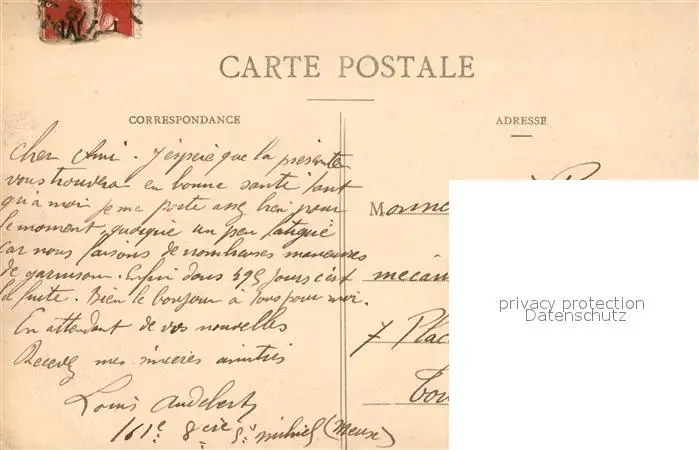 CARTE POSTALE
CORRESPONDANCE
ADRESSE
Cher Ami. J'espère que la présente
vous trouvera en bonne santé tant
qu'à moi je me porte assez bien pour
le moment, quoique un peu fatigué
car nous faisons de nombreuses manœuvres
de garnison. Enfin dans 395 jours c'est
la fuite. Bien le bonjour à tous pour moi.
En attendant de vos nouvelles
Recevez mes sincères amitiés
Louis Audebert
161e 8e Cie St Mihiel (Meuse)
7 Plac
privacy protection
Datenschutz